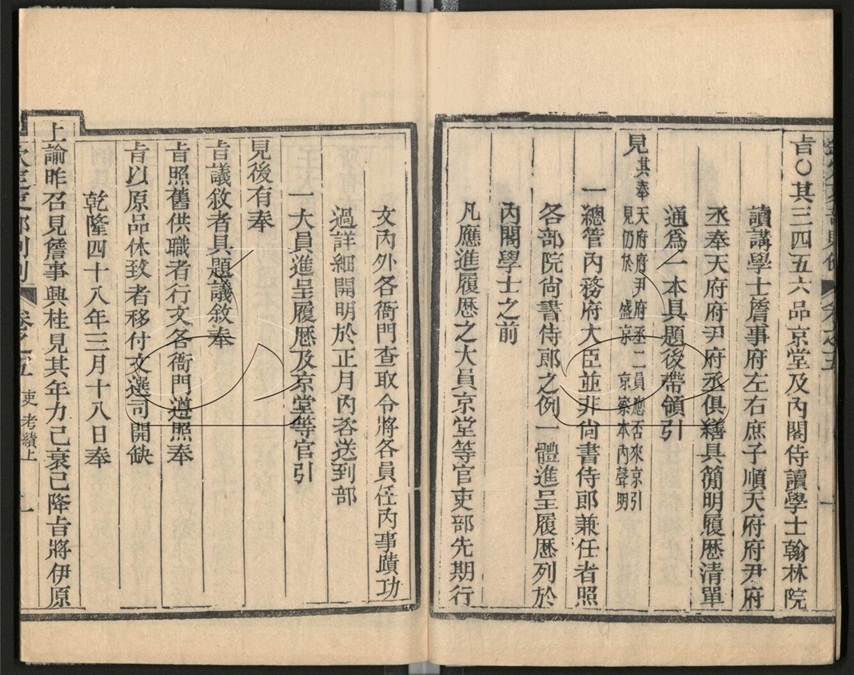 旨○其三四五六品京堂及內閣侍讀學士翰林院
讀講學士詹事府左右庶子順天府府尹府
丞奉天府府尹府丞俱繕具簡明履歷清單
通爲一本具題後帶領引
見其奉天府府尹府丞二員應否來京引
見仍於 盛京 京察本內聲明
一總管內務府大臣並非尚書侍郎兼任者照
各部院尚書侍郎之例一體進呈履歷列於
內閣學士之前
凡應進履歷之大員京堂等官吏部先期行
文內外各衙門查取令將各員任內事蹟功
過詳細開明於正月內咨送到部
一大員進呈履歷及京堂等官引
見後有奉
旨議敘者具題議敘奉
旨照舊供職者行文各衙門遵照奉
旨以原品休致者移付文選司開缺
乾隆四十八年三月十八日奉
上諭昨召見詹事興桂見其年力己衰己降旨將伊原
卷之五 吏 考績上